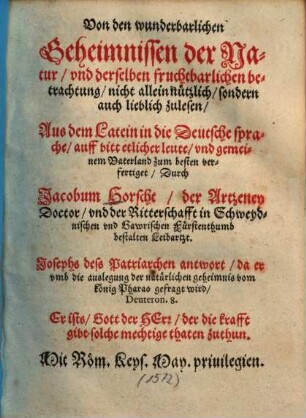 Von den wunderbarlichen
Geheimnissen der Na-
tur / vnd derselben fruchtbarlichen be-
trachtung / nicht allein nützlich / sondern
auch lieblich zulesen /
Aus dem Latein in die Deutsche spra-
che / auff bitt etlicher leute / vnd gemei-
nem Vaterland zum besten ver-
fertiget / Durch
Jacobum Horsche / der Artzeney
Doctor / vnd der Ritterschafft in Schweyd-
nischen vnd Gawrischen Fürstenthumb
bestalten Leibartzt.
Josephs dess Patriarchen antwort / da er
vmb die auslegung der natürlichen geheimnis vom
könig Pharao gefragt wird /
Deuteron. 8.
Er ists / Gott der HErr / der die krafft
gibt solche mechtige thaten zuthun.
Mit Röm. Keys. May. priuilegien.
(1572)